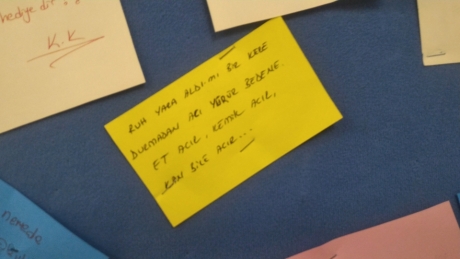 hediyedir
K.K
RUH YARA ALDI MI BİR KERE
DURMADAN ACI YÜRÜR BEDENE.
ET ACIR, KEMİK ACIR,
KAN BİLE ACIR...
nerede